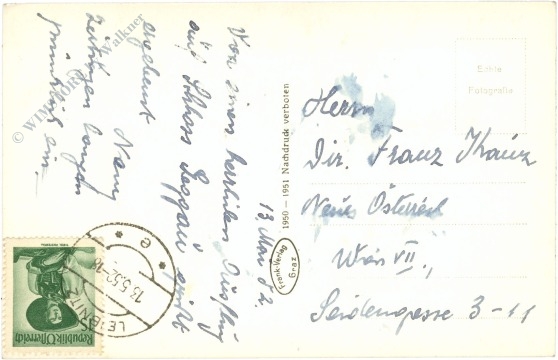 13. Mai 52.
Von einem herrlichen Ausflug
auf Schloss Seggau
ergebenst
Zeitungen langen
pünktlich ein.
© WIMMORE Walkner
1950 - 1951 Nachdruck verboten
Frank-Verlag
Graz
Echte
Fotografie
Herrn
Dir. Franz
Neues Österreich
Wien VII.,
Seidengasse 3-11
LEIBNITZ
13.5.52
e
Republik Österreich